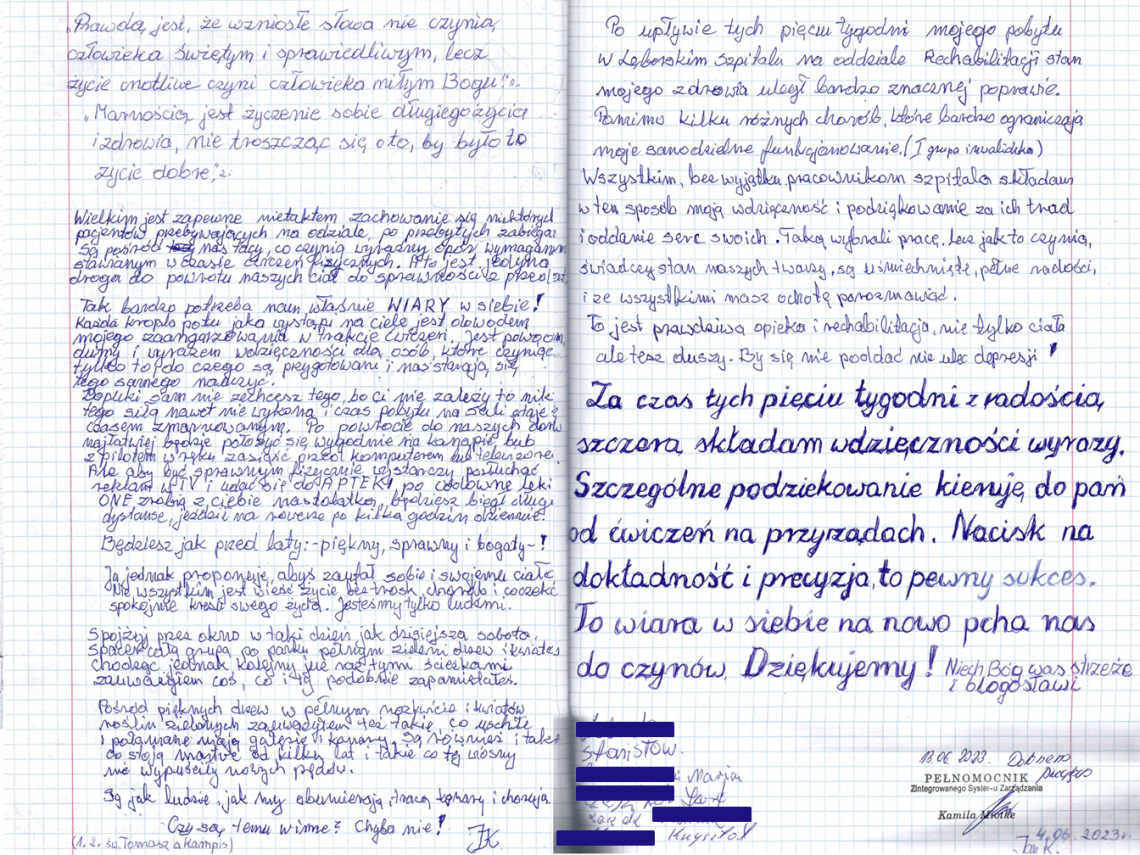 „Prawdą jest, że wzniosłe słowa nie czynią,
człowieka świętym i sprawiedliwym, lecz
życie cnotliwe czyni człowieka miłym Bogu".
„Marnością jest życzenie sobie długiego życia
i zdrowia, nie troszcząc się oto, by było to
życie dobre;"2.
Wielkim jest zapewne nietaktem zachowanie się niektórych
pacjentów przebywających na odziale, po przebytych zabiegai
Są pośród nas tacy, co czynią wyraźny opór wymaganm
stawianym w czasie ćwiczeń fizycznych. A to jest jedyna
droga do powrotu naszych ciał do sprawności z przed
Tak bardzo potrzeba nam właśnie WIARY w siebie!
Każda kropla potu jaka wystąpi na ciele jest dowodem
mojego zaangarzowania w trakcie ćwiczeń. Jest powodem
dumy i wyrazem wdzięczności dla osób, które czynią
tylko to, do czego są przygotowani i nas starają się
tego samego nauczyć.
Dopuki sam nie zechcesz tego, bo ci nie zależy to nikt
tego siłą nawet nie wykona i czas pobytu na sali staje
czasem zmarnowanym. Po powrocie do naszych dom
najłatwiej będzie położyć się wygodnie na kanapie, lub
z pilotem w ręku zasiąść przed komputerem lub telewizorem
Ale aby być sprawnym fizycznie wystarczy posłuchać
reklam w TV i udać się do APTEKI po cudowne leki
ONE zrobią z ciebie nastolatka, będziesz biegł długi
dystanse, jeździł na rowerze po kilka godzin dziennie.
Będziesz jak przed laty:-piękny, sprawny i bogaty-!
Ja jednak proponuję, abyś zaufał sobie i swojemu ciału
Nie wszystkim jest wieść życie bez trosk, chorób i doczekać
spokojnie kresu swego życia. Jesteśmy tylko ludźmi.
Spojżmy przez okno w taki dzień jak dzisiejsza sobota.
Spacer całą grupą po parku pełnym zieleni drzew i kwiatów
chodząc jednak kolejny już raz tymi ścieżkami
zauważyłem coś, co i ty podobnie zapamiętałeś.
Pośród pięknych drzew w pełnym rozkwicie i kwiatów
roślin zielonych zauważyłem też takie, co uschłe
i połamane mają gałęzie i konary. Są również i takie
co stoją martwe od kilku lat i takie co tej wiosny
nie wypuściły nowych pędów.
Są jak ludzie, jak my obumierają, tracą konary i chorują
Czy są temu winne? Chyba nie!
(1.2. św. Tomasz a Kampis)
JK
Po upływie tych pięciu tygodni mojego pobytu
w Lęborskim szpitalu na oddziale Rechabilitacji stan
mojego zdrowia uległ bardzo znacznej poprawie.
Pomimo kilku różnych chorób, które bardzo ograniczają
moje samodzielne funkcjonowanie. (I grupa inwalidzka)
Wszystkim, bez wyjątku, pracownikom szpitala składam
w ten sposób moją wdzięczność i podziękowanie za ich trud
i oddanie serc swoich. Taką wybrali pracę, lecz jak to czynią,
świadczy stan naszych twarzy, są uśmiechnięte, pełne radości,
i ze wszystkimi masz ochotę porozmawiać.
To jest prawdziwa opieka i rechabilitacja, nie tylko ciała
ale tesz duszy. By się nie poddać nie ulec depresji!
Za czas tych pięciu tygodni z radością,
szczerą składam wdzięczności wyrazy.
Szczególne podziekowanie kieruję do pań
od ćwiczeń na przyrządach. Nacisk na
dokładność i precyzja, to pewny sukces.
To wiara w siebie na nowo pcha nas
do czynów. Dziękujemy! Niech Bóg was strzeże
i błogosławi
Stanisław.
Maria
Krzysztof
13.06 2023.
PEŁNOMOCNIK
Zintegrowanego System-u Zarządzania
Kamila Miotke
4.06.2023r
Jan K.